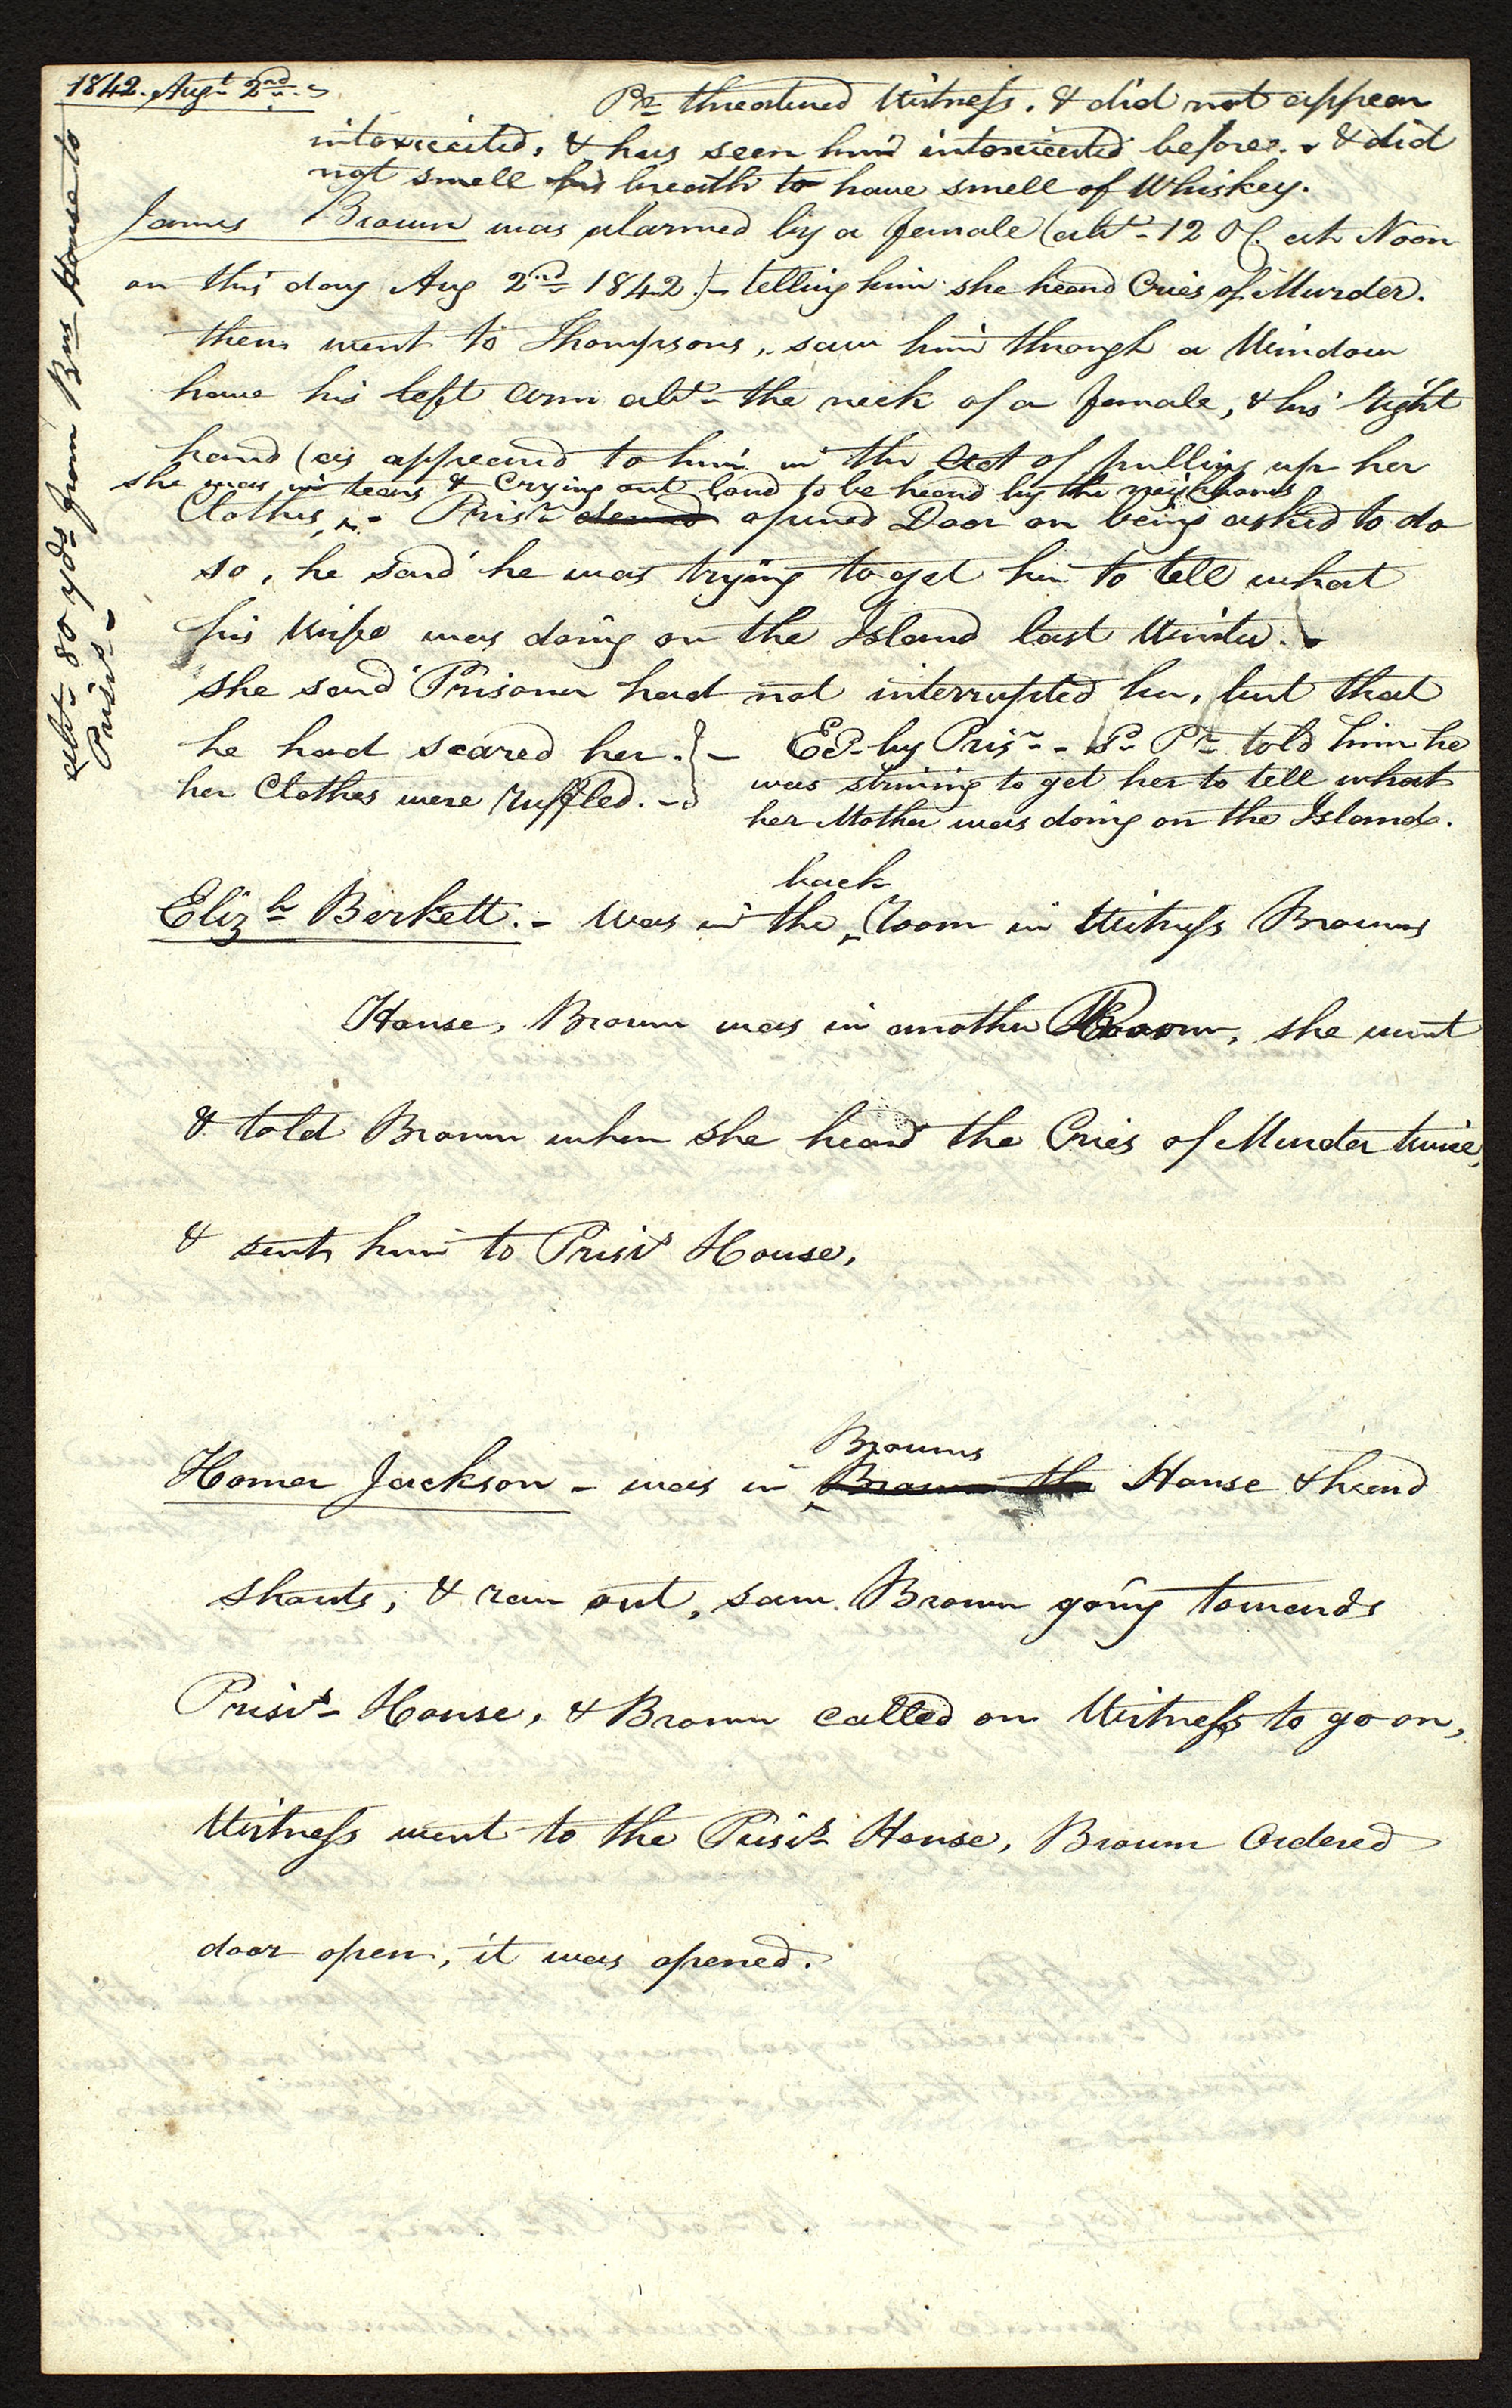 1842. Augt 2nd.
Pr threatened Witness. & did not appear
intoxicated, & has seen him intoxicated before. & did
not smell his breath to have smell of Whiskey.
James Brown was alarmed by a female (abt 12 O C. at Noon
on this day Aug 2nd 1842.) - telling him she heard Cries of Murder.
then went to Thompsons, saw him through a Window
have his left arm abt the neck of a female, & his right
hand (as appeared to him in the Act of pulling up her
she was in tears & Crying out loud to be heard by the neighbours
Clothes, - Prisr denied opened Door on being asked to do
so, he said he was trying to get him to tell what
his Wife was doing on the Island last Winter.
she said Prisoner had not interrupted her, but that
he had scared her. } -
her Clothes were ruffled. -
by Prisr - Pr told him he
was striving to get her to tell what
her Mother was doing on the Island.
abt 80 yds from Bns House to
Prisrs -
Elizh Berkett. - Was in the back Room in Witness Browns
House, Brown was in another Room, she went
& told Brown when she heard the Cries of Murder twice,
& sent him to Prisrs House,
Homer Jackson - was in Browns Brown the House & heard
shouts, & ran out, saw Brown going towards
Prisrs House, & Brown called on Witness to go on,
Witness went to the Prisrs House, Brown Ordered
door open, it was opened.